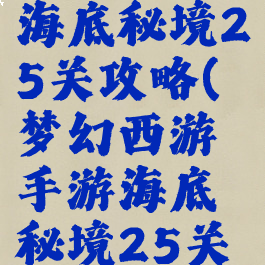 海底秘境2
5关攻略(
梦幻西游
手游海底
秘境25关